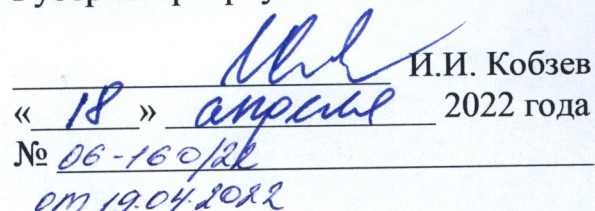 И.И. Кобзев
« 18 » апреля 2022 года
№ 06-160/22
от 19.04.2022